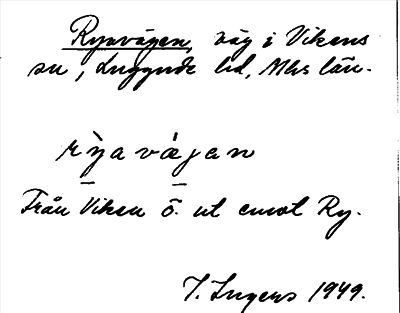 Ryavägen, väg i Vikens
sn, Luggude hd, Mlhs län.
rỳa vàgan
Från Viken ö. ut emot Ry.
I. Ingers 1949.